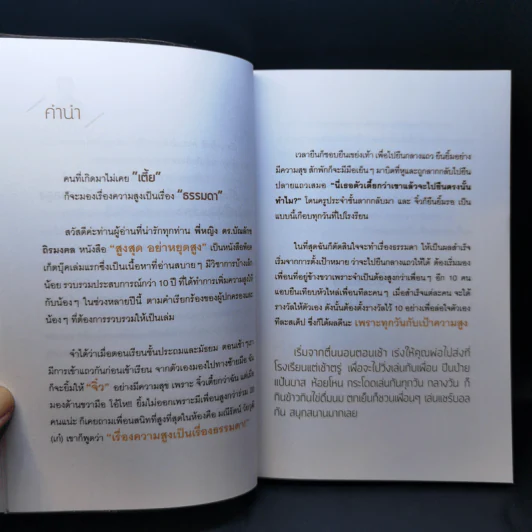 คำนำ
คนที่เกิดมาไม่เคย "เตี้ย"
ก็จะมองเรื่องความสูงเป็นเรื่อง "ธรรมดา"
สวัสดีค่ะท่านผู้อ่านที่น่ารักทุกท่าน พี่หญิง ดร.บัณลักข
ถิรมงคล หนังสือ "สูงสุด อย่าหยุดสูง" เป็นหนังสือพ็อค
เก็ตบุ๊คเล่มแรกซึ่งเป็นเนื้อหาที่อ่านสบายๆ มีวิชาการบ้างเล็ก
น้อย รวบรวมประสบการณ์กว่า 10 ปี ที่ได้ทำการเพิ่มความสูงให้
กับน้องๆ ในช่วงหลายปีนี้ ตามคำเรียกร้องของผู้ปกครองและ
น้องๆ ที่ต้องการรวบรวมให้เป็นเล่ม
จำได้ว่าเมื่อตอนเรียนชั้นประถมและมัธยม ตอนเช้าๆ
มีการเข้าแถวกันก่อนเข้าเรียน จากตัวเองมองไปทางซ้ายมือ
ก็จะยิ้มให้ "จิ๋ว" อย่างมีความสุข เพราะ จิ๋วเตี้ยกว่าฉัน แต่เมื่อ
มองด้านขวามือ โอ้โห!! ยิ้มไม่ออกเพราะมีเพื่อนสูงกว่าร่วม
คนแน่ะ ก็เคยถามเพื่อนสนิทที่สูงที่สุดในห้องคือ มณีรัตน์
(เก๋) เขาก็พูดว่า "เรื่องความสูงเป็นเรื่องธรรมดา"
เวลายืนก็ชอบยืนเขย่งเท้า เพื่อไปยืนกลางแถว ยืนยิ้มอย่าง
มีความสุข สักพักก็จะมีมือเย็นๆ มาบิดที่หูและถูกลากกลับไปยืน
ปลายแถวเสมอ "นี่เธอตัวเตี้ยกว่าเขาแล้วจะไปยืนตรงนั้น
ทำไม?" โดนครูประจำชั้นลากกลับมา และ จิ๋วก็ยืนยิ้มรอ เป็น
แบบนี้เกือบทุกวันที่ไปโรงเรียน
ในที่สุดฉันก็ตัดสินใจจะทำเรื่องธรรมดา ให้เป็นผลสำเร็จ
เริ่มจากการตั้งเป้าหมาย ว่าจะไปยืนกลางแถวให้ได้ ต้องเริ่มมอง
เพื่อนที่อยู่ข้างขวาเพราะจำเป็นต้องสูงกว่าเพื่อนๆ อีก 10 คน
แอบยืนเทียบหัวไหล่เพื่อนทีละคนๆ เมื่อสำเร็จแต่ละคน จะได้
รางวัลให้ตัวเอง ดังนั้นต้องตั้งรางวัลไว้ 10 อย่างเพื่อล่อใจตัวเอง
ทีละสเต็ป ซึ่งก็ได้ผลดีนะ เพราะทุกวันคือเป้าความสูง
เริ่มจากตื่นนอนตอนเช้า เร่งให้คุณพ่อไปส่งที่
โรงเรียนแต่เช้าตรู่ เพื่อจะไปวิ่งเล่นกับเพื่อน ปีนป่าย
แป้นบาส ห้อยโหน กระโดดเล่นกันทุกวัน กลางวัน ก็
กินข้าวกินไข่ดื่มนม ตกเย็นก็ชวนเพื่อนๆ เล่นแชร์บอล
กัน สนุกสนานมากเลย